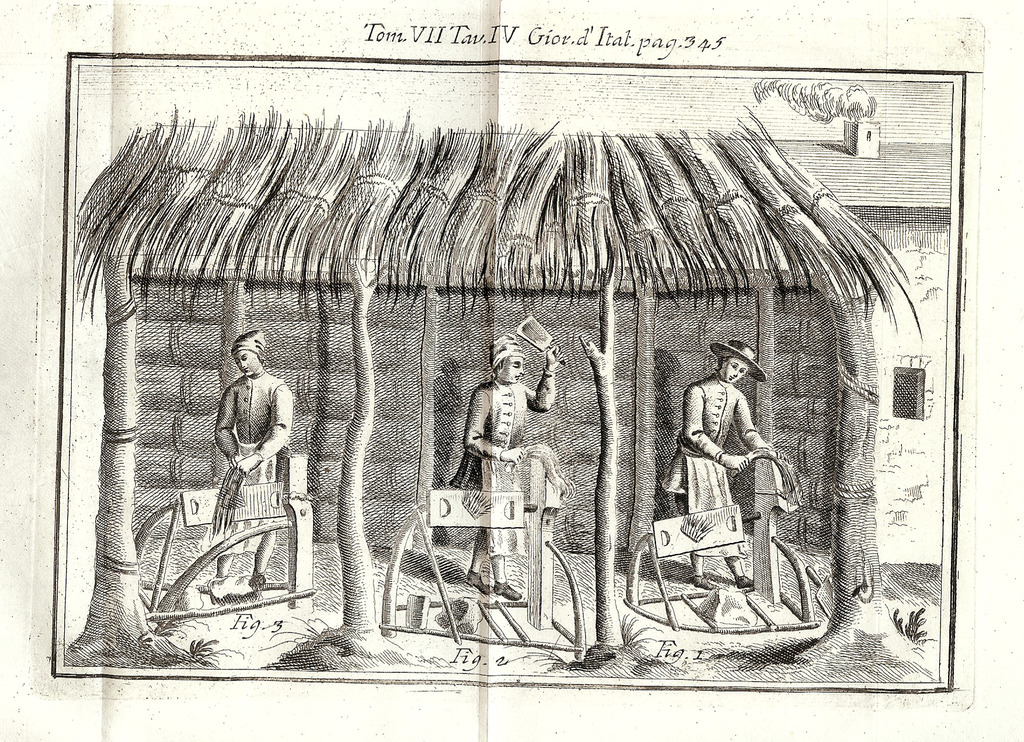 Tom. VII Tav. IV Gior. d' Ital. pag. 345
Fig. 3
Fig. 2
Fig. 1